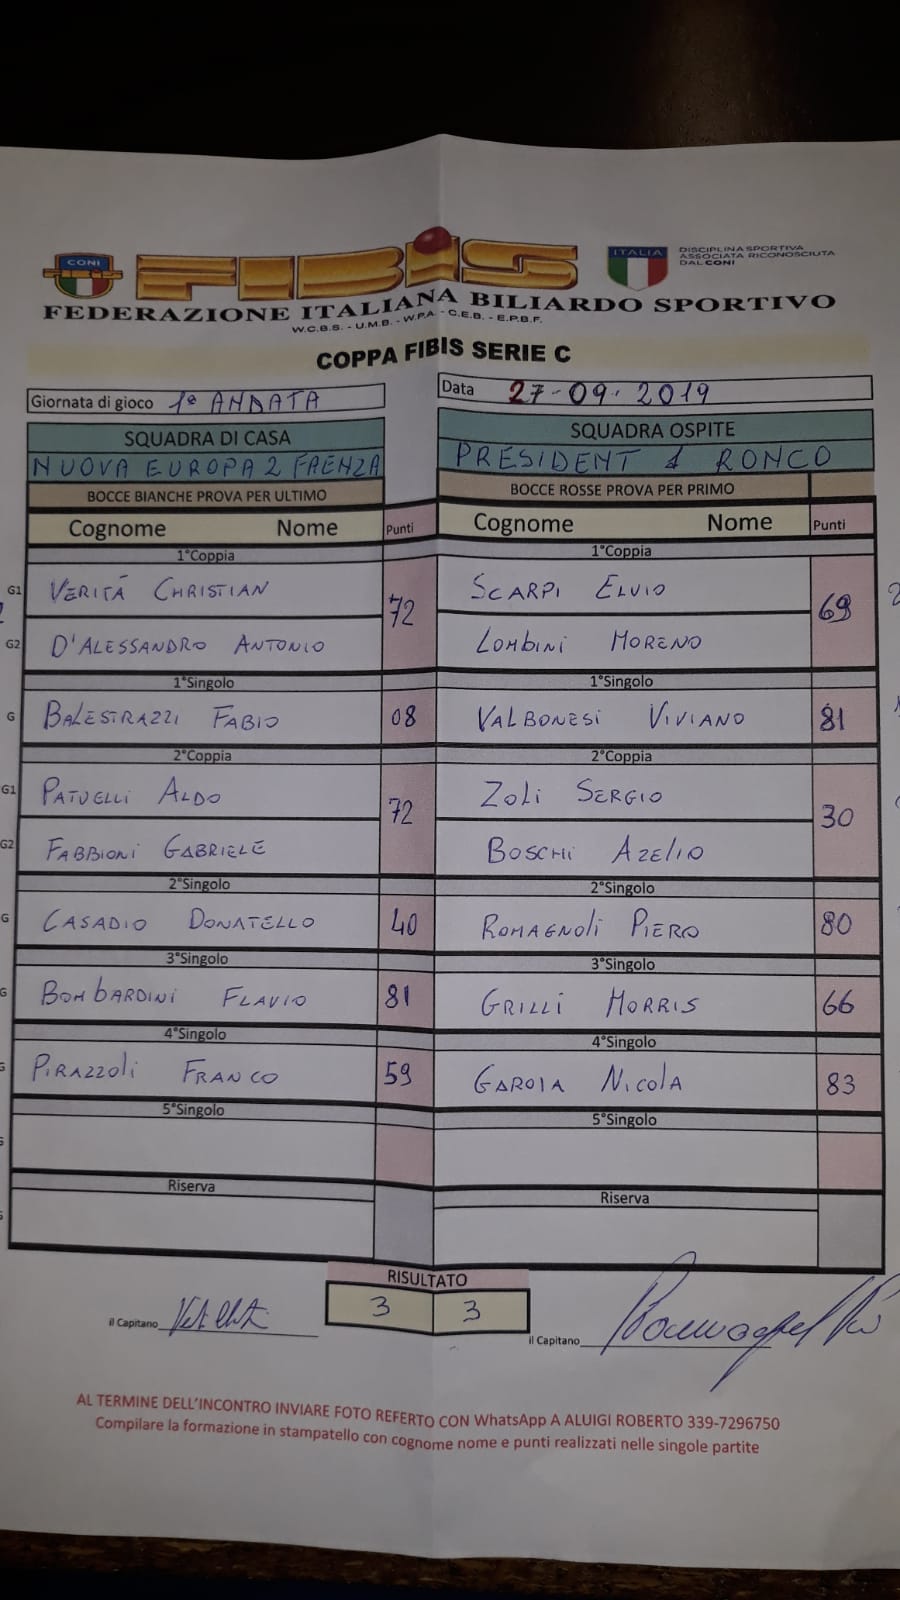 CONI
FIBIS
ITALIA
DISCIPLINA SPORTIVA
ASSOCIATA RICONOSCIUTA
DAL CONI
FEDERAZIONE ITALIANA BILIARDO SPORTIVO
W.C.B.S. - U.M.B. - W.P.A. - C.E.B. - E.P.B.F.
COPPA FIBIS SERIE C
Giornata di gioco 1ª ANDATA
Data 27-09-2019
SQUADRA DI CASA
SQUADRA OSPITE
NUOVA EUROPA 2 FAENZA
PRESIDENT 1 RONCO
BOCCE BIANCHE PROVA PER ULTIMO
BOCCE ROSSE PROVA PER PRIMO
Cognome Nome Punti
Cognome Nome Punti
1°Coppia
1°Coppia
G1 VERITÁ CHRISTIAN 72
SCARPI ELVIO 69
G2 D'ALESSANDRO ANTONIO
LOMBINI MORENO
1°Singolo
1°Singolo
G BALESTRAZZI FABIO 08
VALBONESI VIVIANO 81
2°Coppia
2°Coppia
G1 PATUELLI ALDO 72
ZOLI SERGIO 30
G2 FABBIONI GABRIELE
BOSCHI AZELIO
2°Singolo
2°Singolo
G CASADIO DONATELLO 40
ROMAGNOLI PIERO 80
3°Singolo
3°Singolo
G BOMBARDINI FLAVIO 81
GRILLI MORRIS 66
4°Singolo
4°Singolo
G PIRAZZOLI FRANCO 59
GAROIA NICOLA 83
5°Singolo
5°Singolo
Riserva
Riserva
RISULTATO
3 3
il Capitano
il Capitano
AL TERMINE DELL'INCONTRO INVIARE FOTO REFERTO CON WhatsApp A ALUIGI ROBERTO 339-7296750
Compilare la formazione in stampatello con cognome nome e punti realizzati nelle singole partite